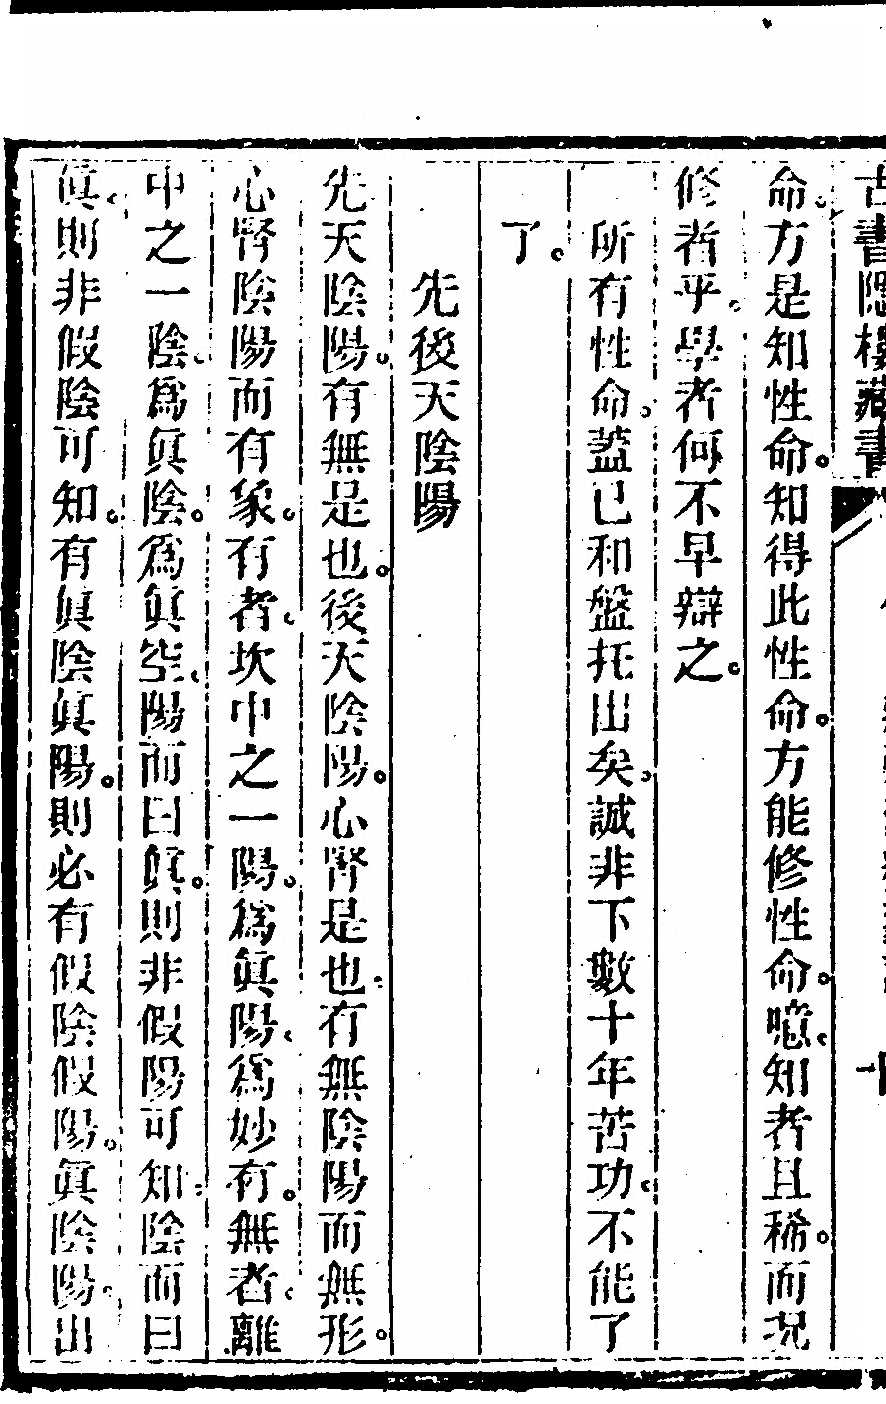 古書隱樓藏書
命。方是知性命。知得此性命。方能修性命。噫。知者且稀。而況
修者乎。學者何不早辯之。
所有性命。蓋已和盤托出矣。誠非下數十年苦功。不能了
了。
先後天陰陽
先天陰陽。有無是也。後天陰陽。心腎是也。有無陰陽而無形。
心腎陰陽而有象。有者。坎中之一陽。爲眞陽。爲妙有。無者。離
中之一陰。爲眞陰。爲眞空。陽而曰眞。則非假陽可知。陰而曰
眞。則非假陰可知。有眞陰眞陽。則必有假陰假陽。眞陰陽。出